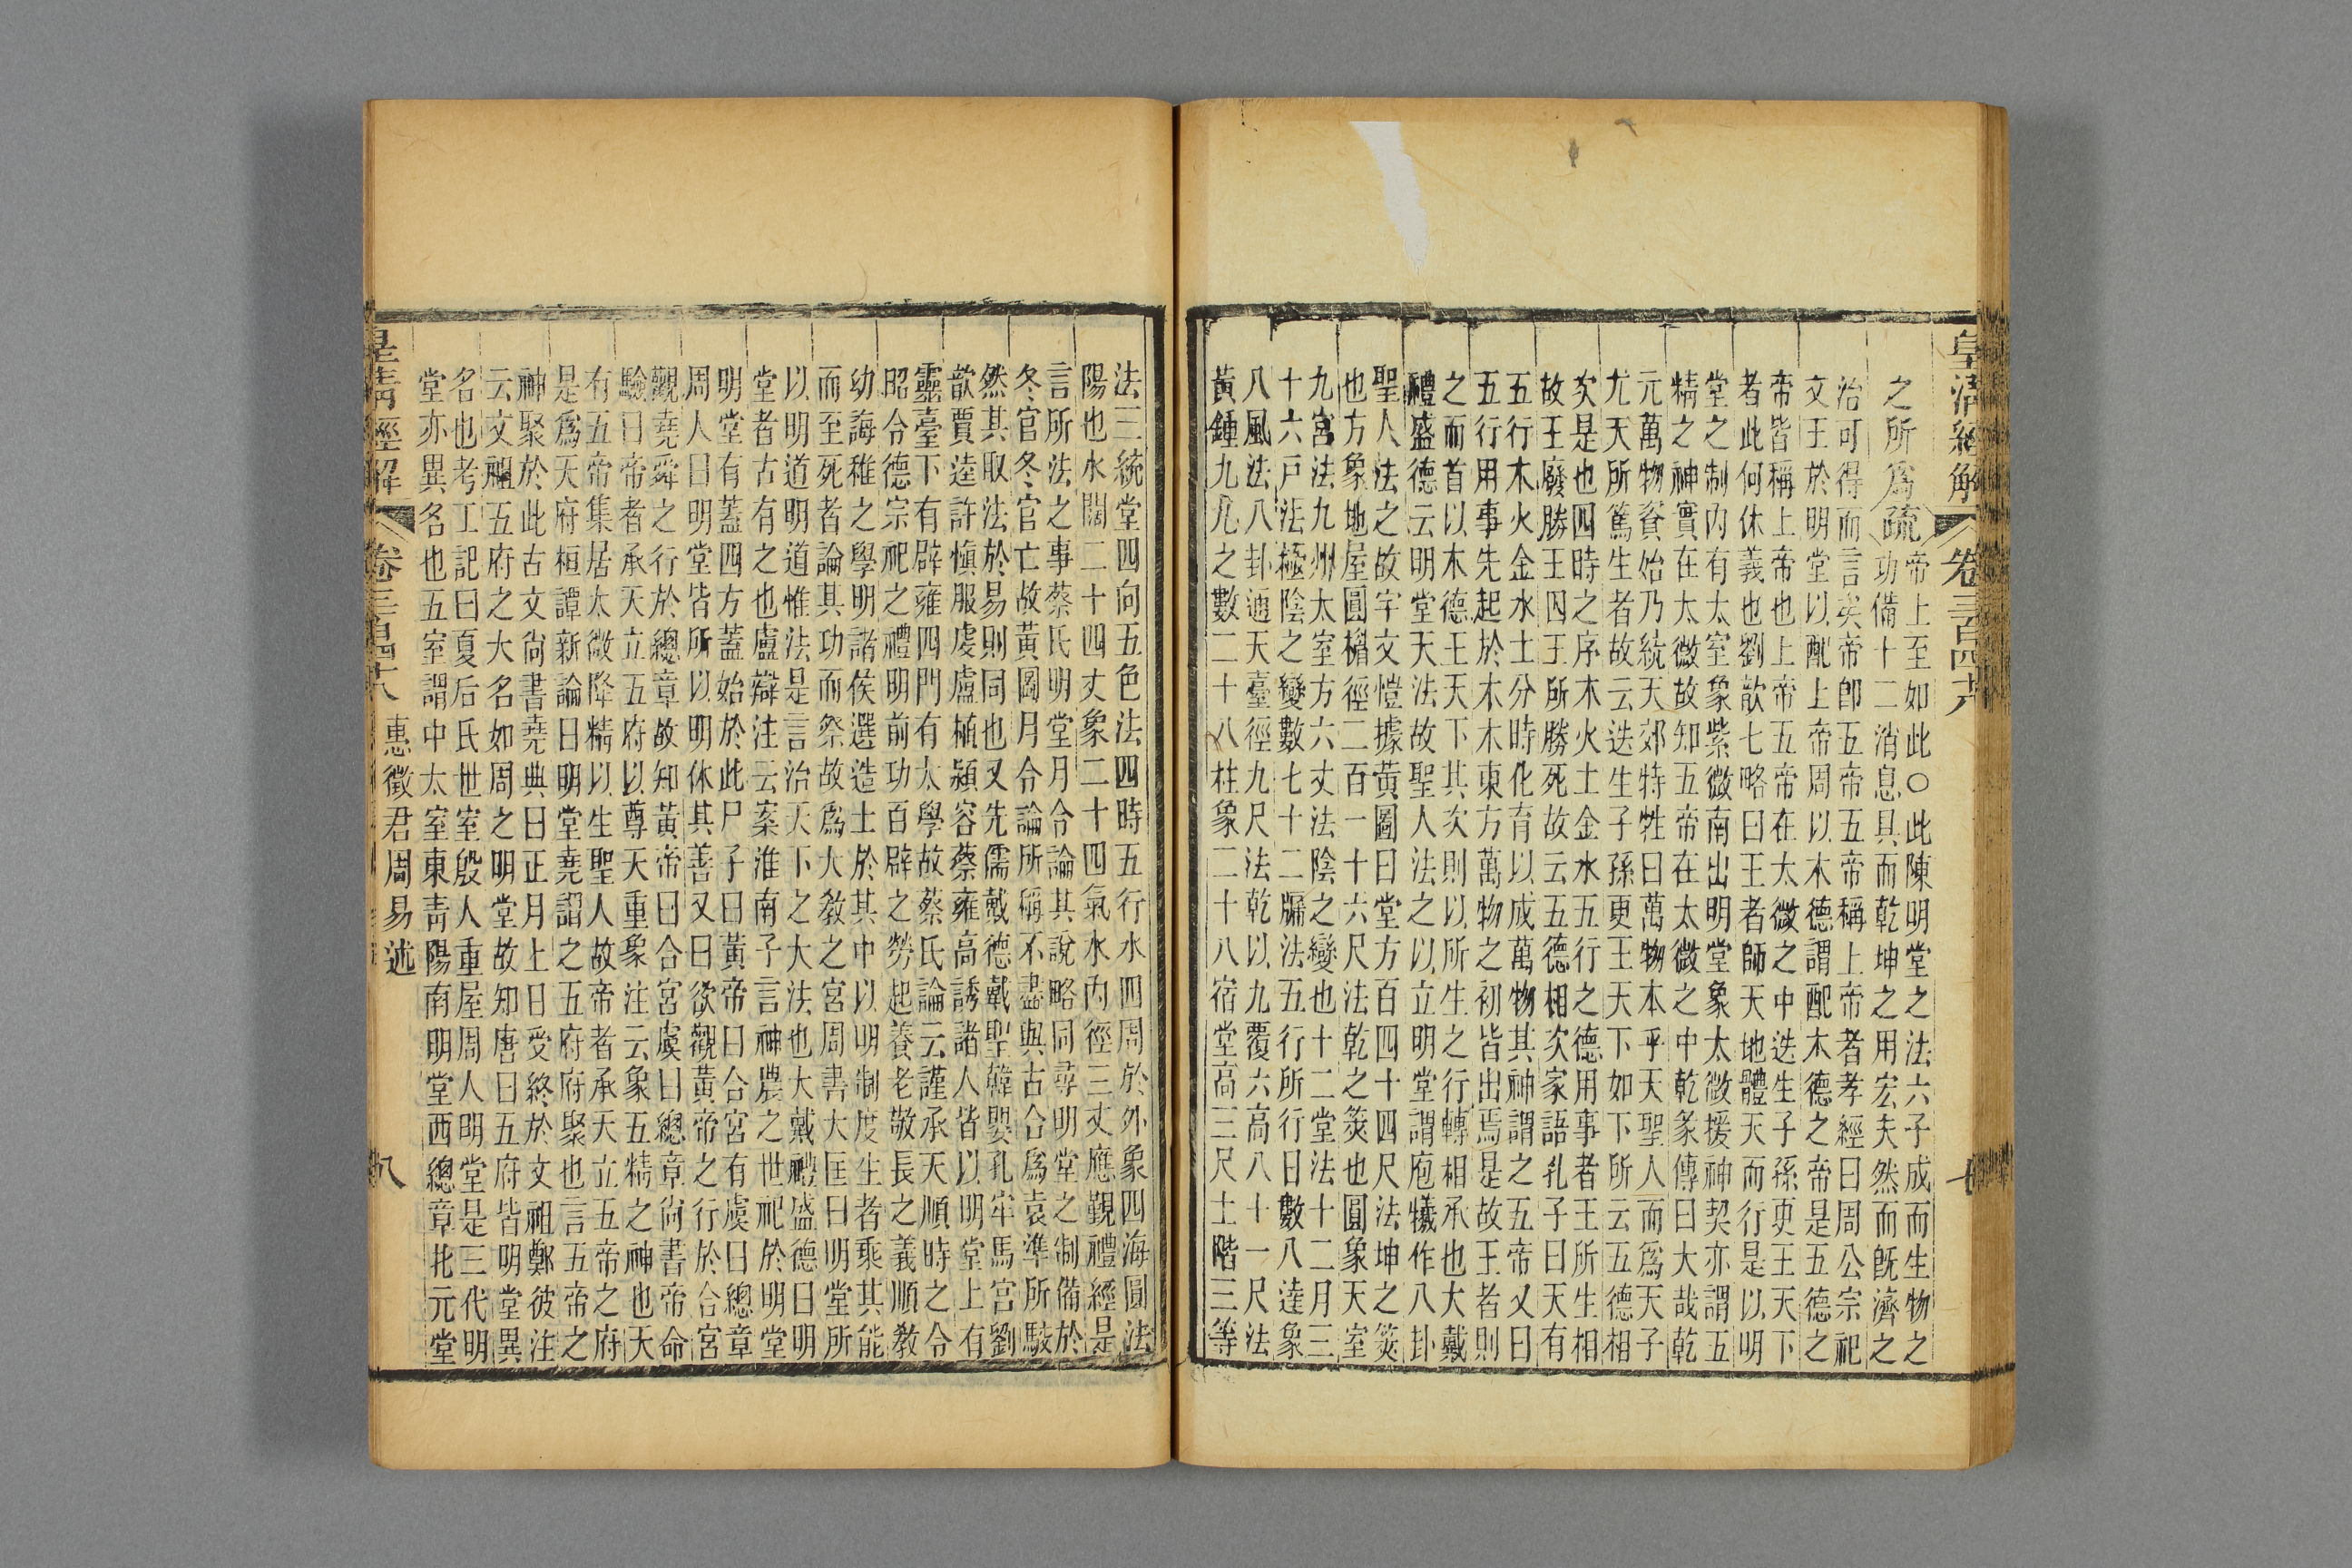 皇清經解 卷三百四十八 七
之所爲疏
帝上至如此○此陳明堂之法六子成而生物之
功備十二消息具而乾坤之用宏夫然而旣濟之
治可得而言矣帝卽五帝五帝稱上帝者孝經曰周公宗祀
文王於明堂以配上帝周以木德謂配木德之帝是五德之
帝皆稱上帝也上帝五帝在太微之中迭生子孫更王天下
者此何休義也劉歆七略曰王者師天地體天而行是以明
堂之制內有太室象紫微南出明堂象太微援神契亦謂五
精之神實在太微故知五帝在太微之中乾彖傳曰大哉乾
元萬物資始乃統天郊特牲曰萬物本乎天聖人而爲天子
尤天所篤生者故云迭生子孫更王天下如下所云五德相
次是也四時之序木火土金水五行之德用事者王所生相
故王廢勝王囚王所勝死故云五德相次家語孔子曰天有
五行木火金水土分時化育以成萬物其神謂之五帝又曰
五行用事先起於木木東方萬物之初皆出焉是故王者則
之而首以木德王天下其次則以所生之行轉相承也大戴
禮盛德云明堂天法故聖人法之以立明堂謂庖犧作八卦
聖人法之故宇文愷據黃圖曰堂方百四十四尺法坤之筴
也方象地屋圓楣徑二百一十六尺法乾之筴也圓象天室
九宮法九州太室方六丈法陰之變也十二堂法十二月三
十六戶法極陰之變數七十二牖法五行所行日數八達象
八風法八卦通天臺徑九尺法乾以九覆六高八十一尺法
黃鍾九九之數二十八柱象二十八宿堂高三尺土階三等
法三統堂四向五色法四時五行水四周於外象四海圓法
陽也水闊二十四丈象二十四氣水內徑三丈應覲禮經是
言所法之事蔡氏明堂月令論其說略同尋明堂之制備於
冬官冬官亡故黃圖月令論所稱不盡與古合爲袁準所駮
然其取法於易則同也又先儒戴德戴聖韓嬰孔牢馬宮劉
歆賈逵許愼服虔盧植潁容蔡雍高誘諸人皆以明堂上有
靈臺下有辟雍四門有太學故蔡氏論云謹承天順時之令
昭令德宗祀之禮明前功百辟之勞起養老敬長之義順敎
幼誨稚之學明諸侯選造士於其中以明制度生者乘其能
而至死者論其功而祭故爲大敎之宮周書大匡曰明堂所
以明道明道惟法是言治天下之大法也大戴禮盛德曰明
堂者古有之也盧辯注云案淮南子言神農之世祀於明堂
明堂有蓋四方蓋始於此尸子曰黃帝曰合宮有虞曰總章
周人曰明堂皆所以明休其善又曰欲觀黃帝之行於合宮
觀堯舜之行於總章故知黃帝曰合宮虞曰總章尙書帝命
驗曰帝者承天立五府以尊天重象注云象五精之神也天
有五帝集居太微降精以生聖人故帝者承天立五帝之府
是爲天府桓譚新論曰明堂堯謂之五府府聚也言五帝之
神聚於此古文尙書堯典曰正月上日受終於文祖鄭彼注
云文祖五府之大名如周之明堂故知唐曰五府皆明堂異
名也考工記曰夏后氏世室殷人重屋周人明堂是三代明
堂亦異名也五室謂中太室東靑陽南明堂西總章北元堂
皇清經解 卷三百四十八 惠徵君周易述 八